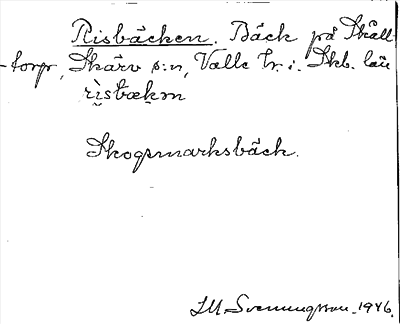 Risbäcken. Bäck på Skåll-
-torp, Skärv s:n, Valle hr. i. Skb. län
rìsbækən
Skogsmarksbäck.
S. M. Svenungsson. 1946.